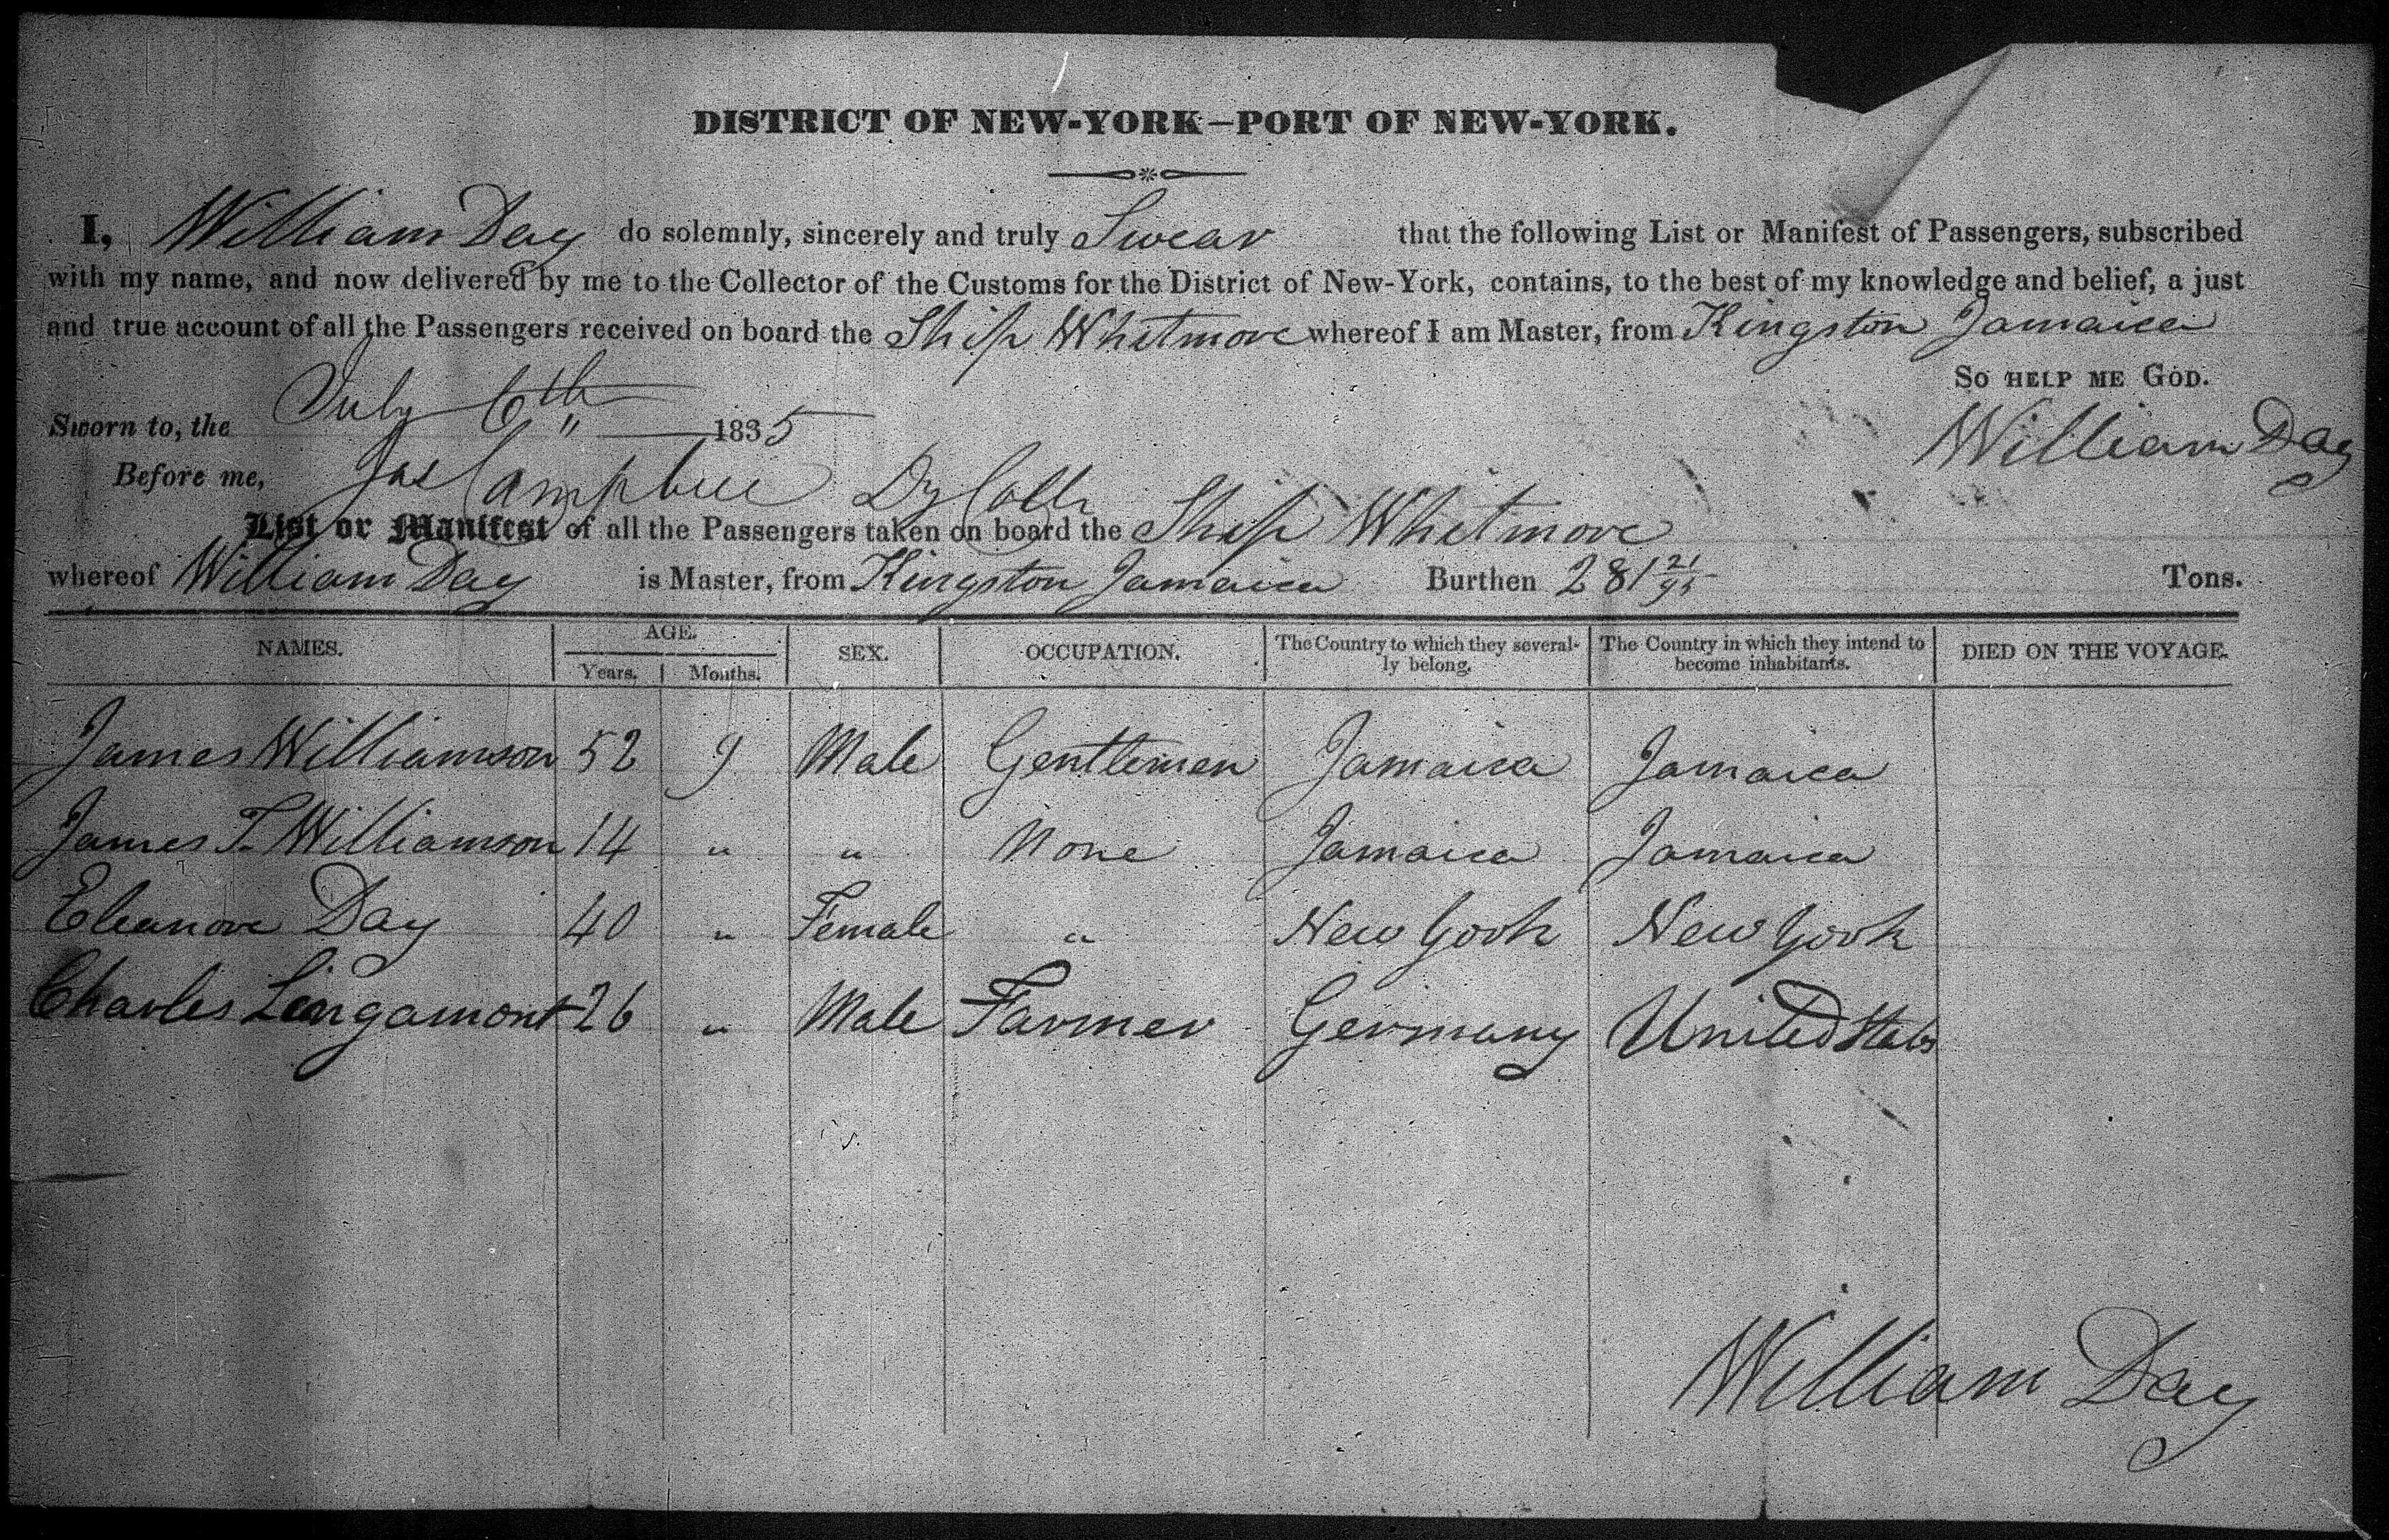 DISTRICT OF NEW-YORK—PORT OF NEW-YORK.
I, William Day do solemnly, sincerely and truly Swear that the following List or Manifest of Passengers, subscribed
with my name, and now delivered by me to the Collector of the Customs for the District of New-York, contains, to the best of my knowledge and belief, a just
and true account of all the Passengers received on board the Ship Whitmore whereof I am Master, from Kingston Jamaica
So HELP ME GOD.
Sworn to, the July 6th 1835 William Day
Before me, Jas Campbell Dy Collr
List or Manifest of all the Passengers taken on board the Ship Whitmore
whereof William Day is Master, from Kingston Jamaica Burthen 281 21/95 Tons.
NAMES. AGE. Years. Months. SEX. OCCUPATION. The Country to which they several-ly belong. The Country in which they intend to become inhabitants. DIED ON THE VOYAGE.
James Williamson 52 9 Male Gentlemen Jamaica Jamaica
James T. Williamson 14 " " None Jamaica Jamaica
Eleanore Day 40 " Female " New York New York
Charles Lingamont 26 " Male Farmer Germany United States
William Day